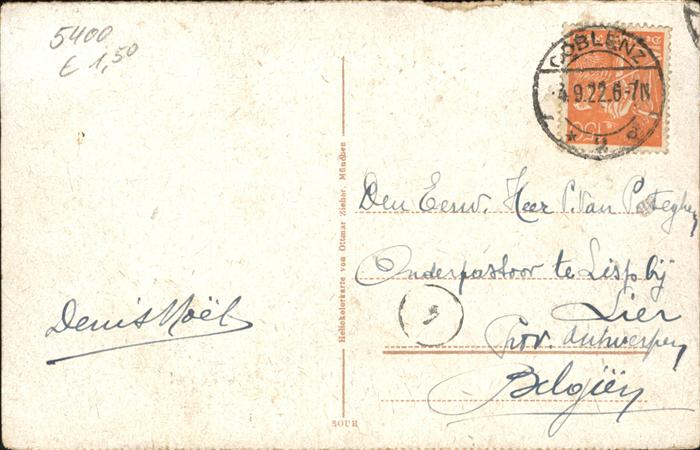 5400
€ 1,50
COBLENZ
4.9.22.6-7N
150
Den Eerw. Heer P. Van Poteghem
Onderpastoor te Lisp bij
Lier
Prov. Antwerpen
Belgiën
Denis Noël
Heliokolorkarte von Ottmar Zieher, München